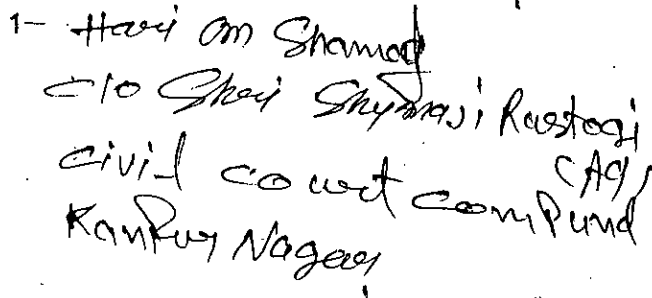 1- Hari Om Sharma
C/o Shri Shyamaji Rastogi
(Ad)
Civil Court Compund
Kanpur Nagar